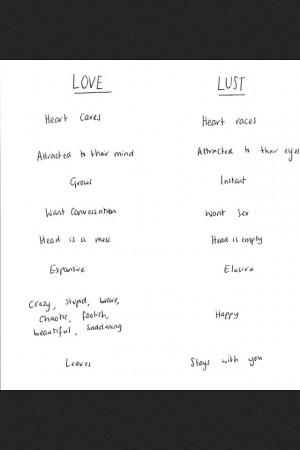 LOVE LUST
Heart Caves Heart races
Attracted to their mind Attracted to their eyes
Grows Instant
Want Conversation Want Sex
Head is a mess Head is empty
Expansive Elusive
Crazy, stupid, brave,
chaotic, foolish, Happy
beautiful, saddening
Leaves Stays with you